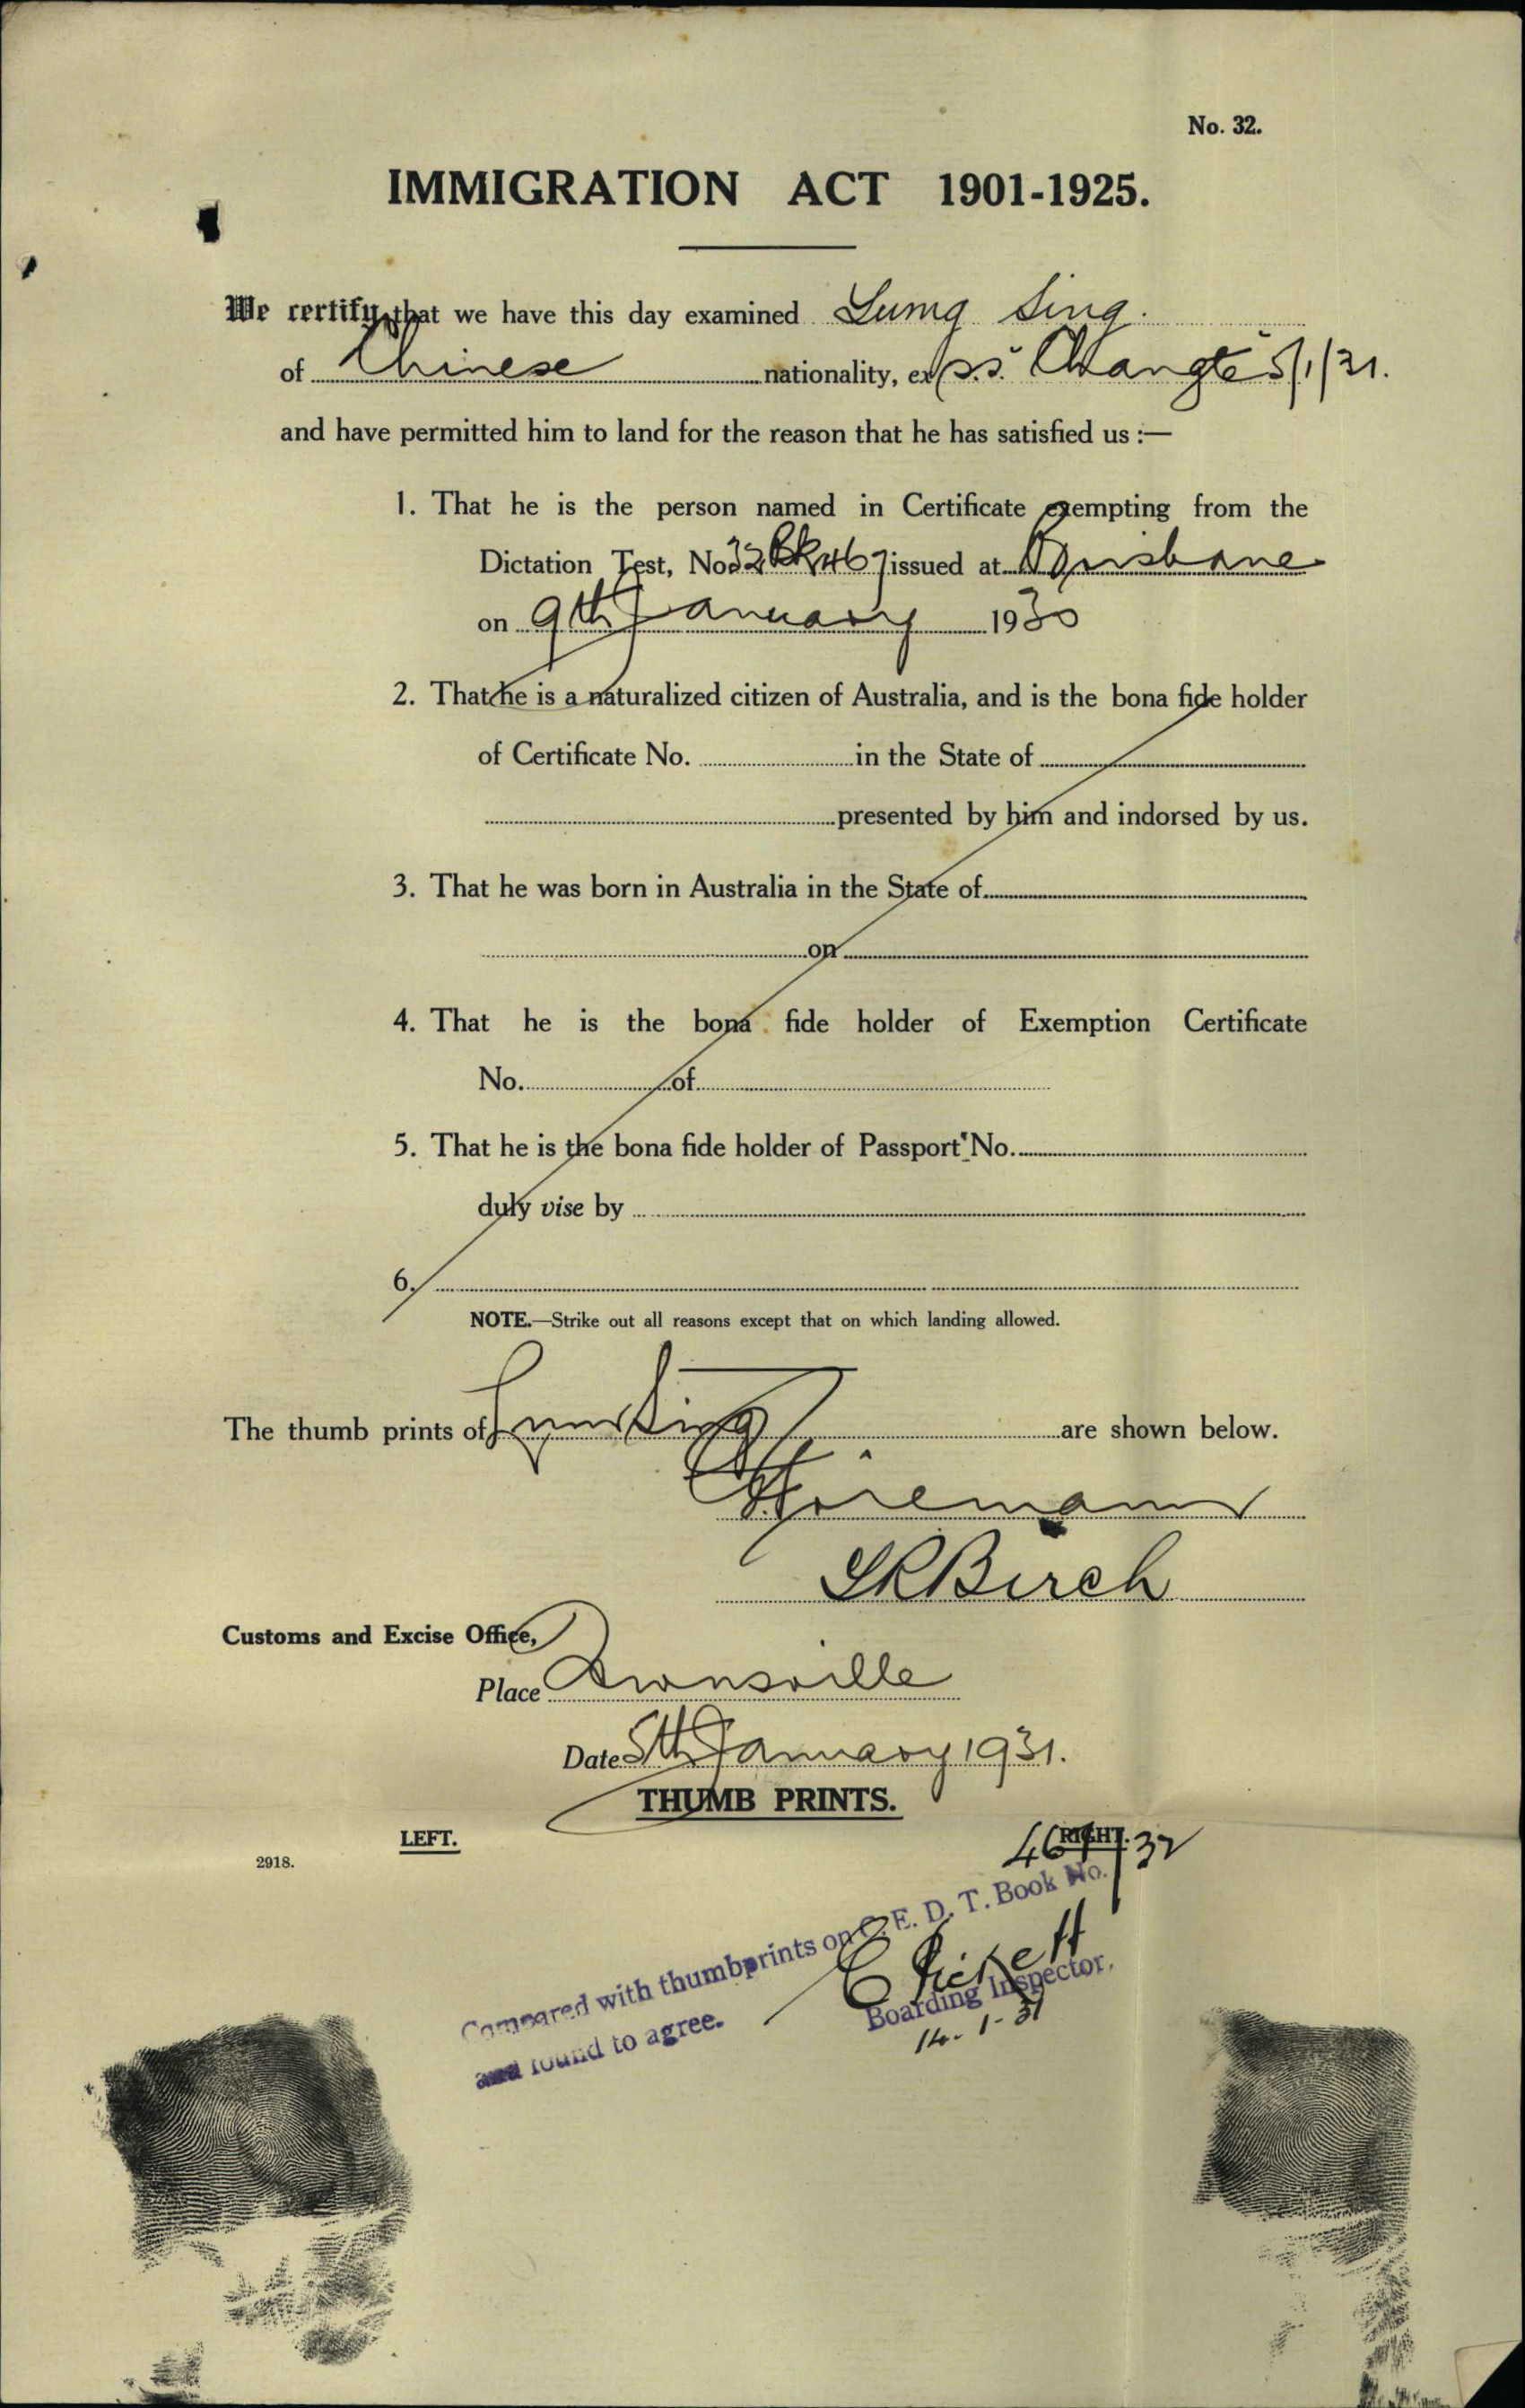 No. 32.
IMMIGRATION ACT 1901-1925.
We certify that we have this day examined Lumg Sing.
of Chinese nationality, ex s.s. "Changte" 5/1/31.
and have permitted him to land for the reason that he has satisfied us :—
1. That he is the person named in Certificate exempting from the
Dictation Test, No 32 Bk 467 issued at Brisbane
on 9th January 1930
2. That he is a naturalized citizen of Australia, and is the bona fide holder
of Certificate No. in the State of
presented by him and indorsed by us.
3. That he was born in Australia in the State of
on
4. That he is the bona fide holder of Exemption Certificate
No. of
5. That he is the bona fide holder of Passport No.
duly vise by
6.
NOTE.—Strike out all reasons except that on which landing allowed.
The thumb prints of Sing are shown below.
SRBirch
Customs and Excise Office,
Place Townsville
Date 5th January 1931.
THUMB PRINTS.
LEFT. RIGHT.
2918.
467/32
Compared with thumbprints on C. E. D. T. Book No.
and found to agree.
C Rickett
Boarding Inspector.
14-1-31